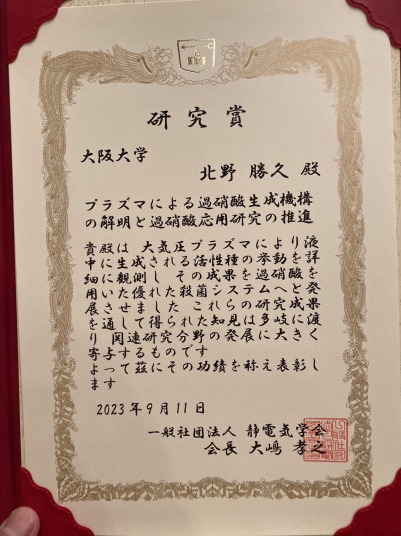 研究賞
大阪大学
北野 勝久 殿
プラズマによる過硝酸生成機構
の解明と過硝酸応用研究の推進
貴殿は 大気圧プラズマにより液
中に生成される活性種の挙動を詳
細に観測し その成果を過硝酸を
用いた優れた殺菌システムへと発
展させました これらの研究成果
を通して得られた知見は多岐に渡
り 関連研究分野の発展に大きく
寄与するものです
よって茲にその功績を称え表彰し
ます
2023年9月11日
一般社団法人 静電気学会
会長 大嶋 孝之